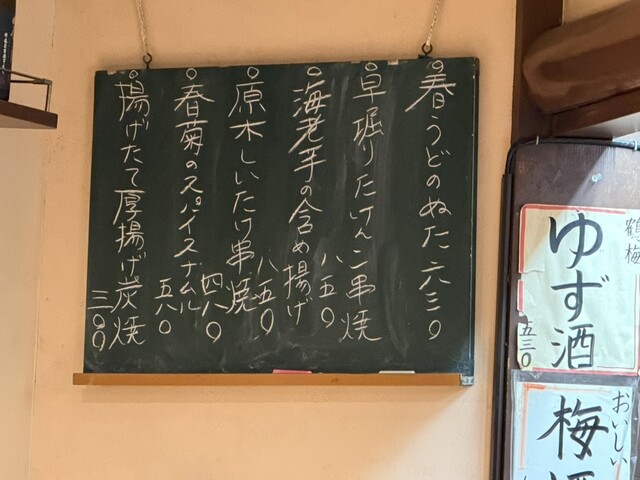 ○春うどのぬた 六三〇
○早堀りたけんこ串焼 八五〇
○海老芋の含め揚げ 八五〇
○原木しいたけ串焼 四八〇
○春菊のスパイスナムル 五八〇
○揚げたて厚揚げ炭焼 三〇〇
鶴梅
ゆず酒
五三〇
おいしい
梅酒